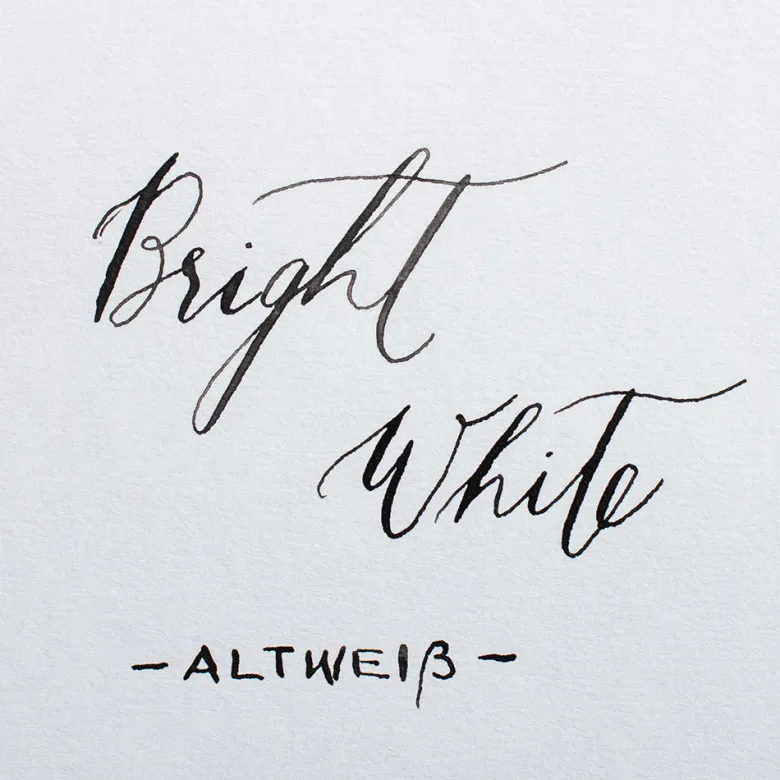 Bright
White
- ALTWEIß -